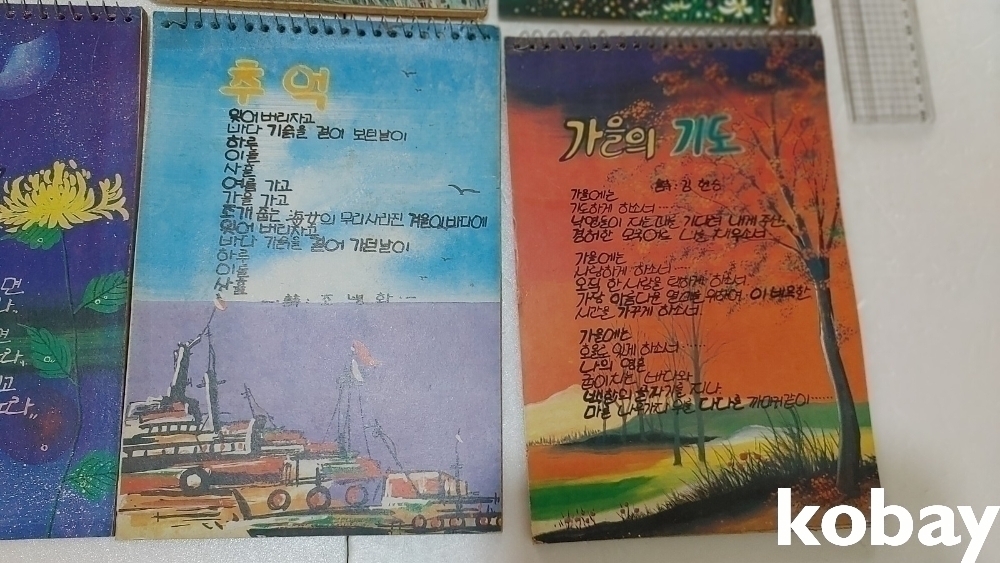 면
추억
잊어버리자고
바다 기슭을 걸어 보던날이
하루
이틀
사흘
여름 가고
가을 가고
조개 줍는 海女의 무리사라진 겨울이 바다에
잊어 버리자고
바다 기슭을 걸어 가던날이
하루
이틀
사흘
詩. 조병화
가을의 기도
詩. 김현승
가을에는
기도하게 하소서......
낙엽들이 지는때를 기다려 내게 주신
겸허한 모국어로 나를 채우소서.
가을에는
사랑하게 하소서......
오직 한 사람을 택하게 하소서.
가장 아름다운 열매를 위하여 이 비옥한
시간을 가꾸게 하소서.
가을에는
호올로 있게 하소서......
나의 영혼
굽이치는 바다와
백합의 골짜기를 지나
마른 나뭇가지 위에 다다른 까마귀같이......
kobay